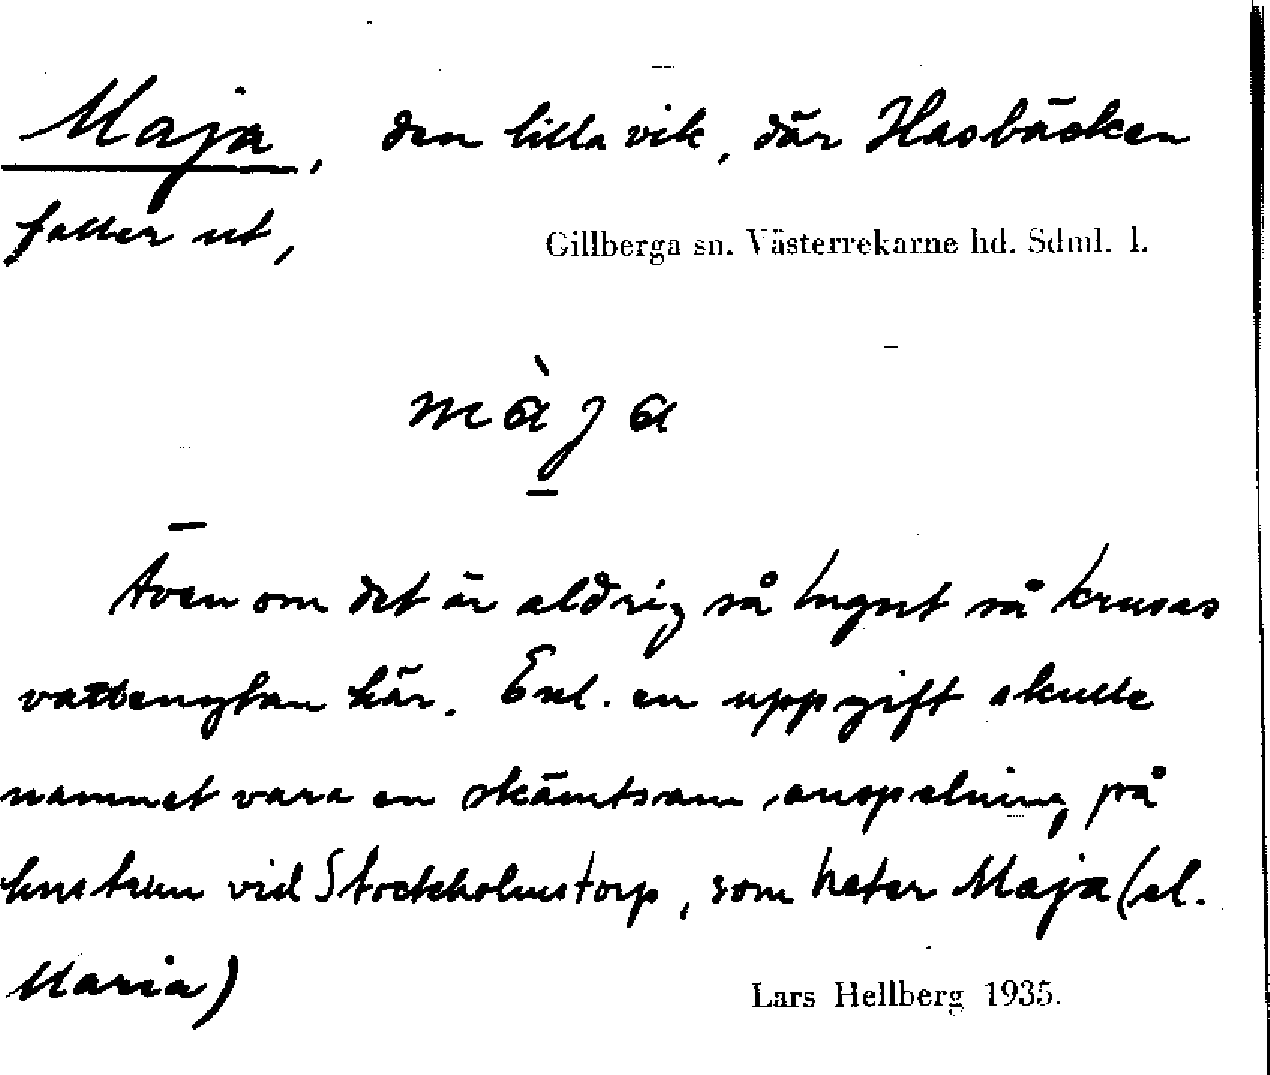 Maja, den lilla vik, där Hasbäcken
faller ut,
Gillberga sn. Västerrekarne hd. Sdml. l.
màja
Även om det är aldrig så lugnt så krusas
vattenytan här. Enl. en uppgift skulle
namnet vara en skämtsam anspelning på
hustrun vid Stockholmstorp, som heter Maja (el.
Maria)
Lars Hellberg 1935.